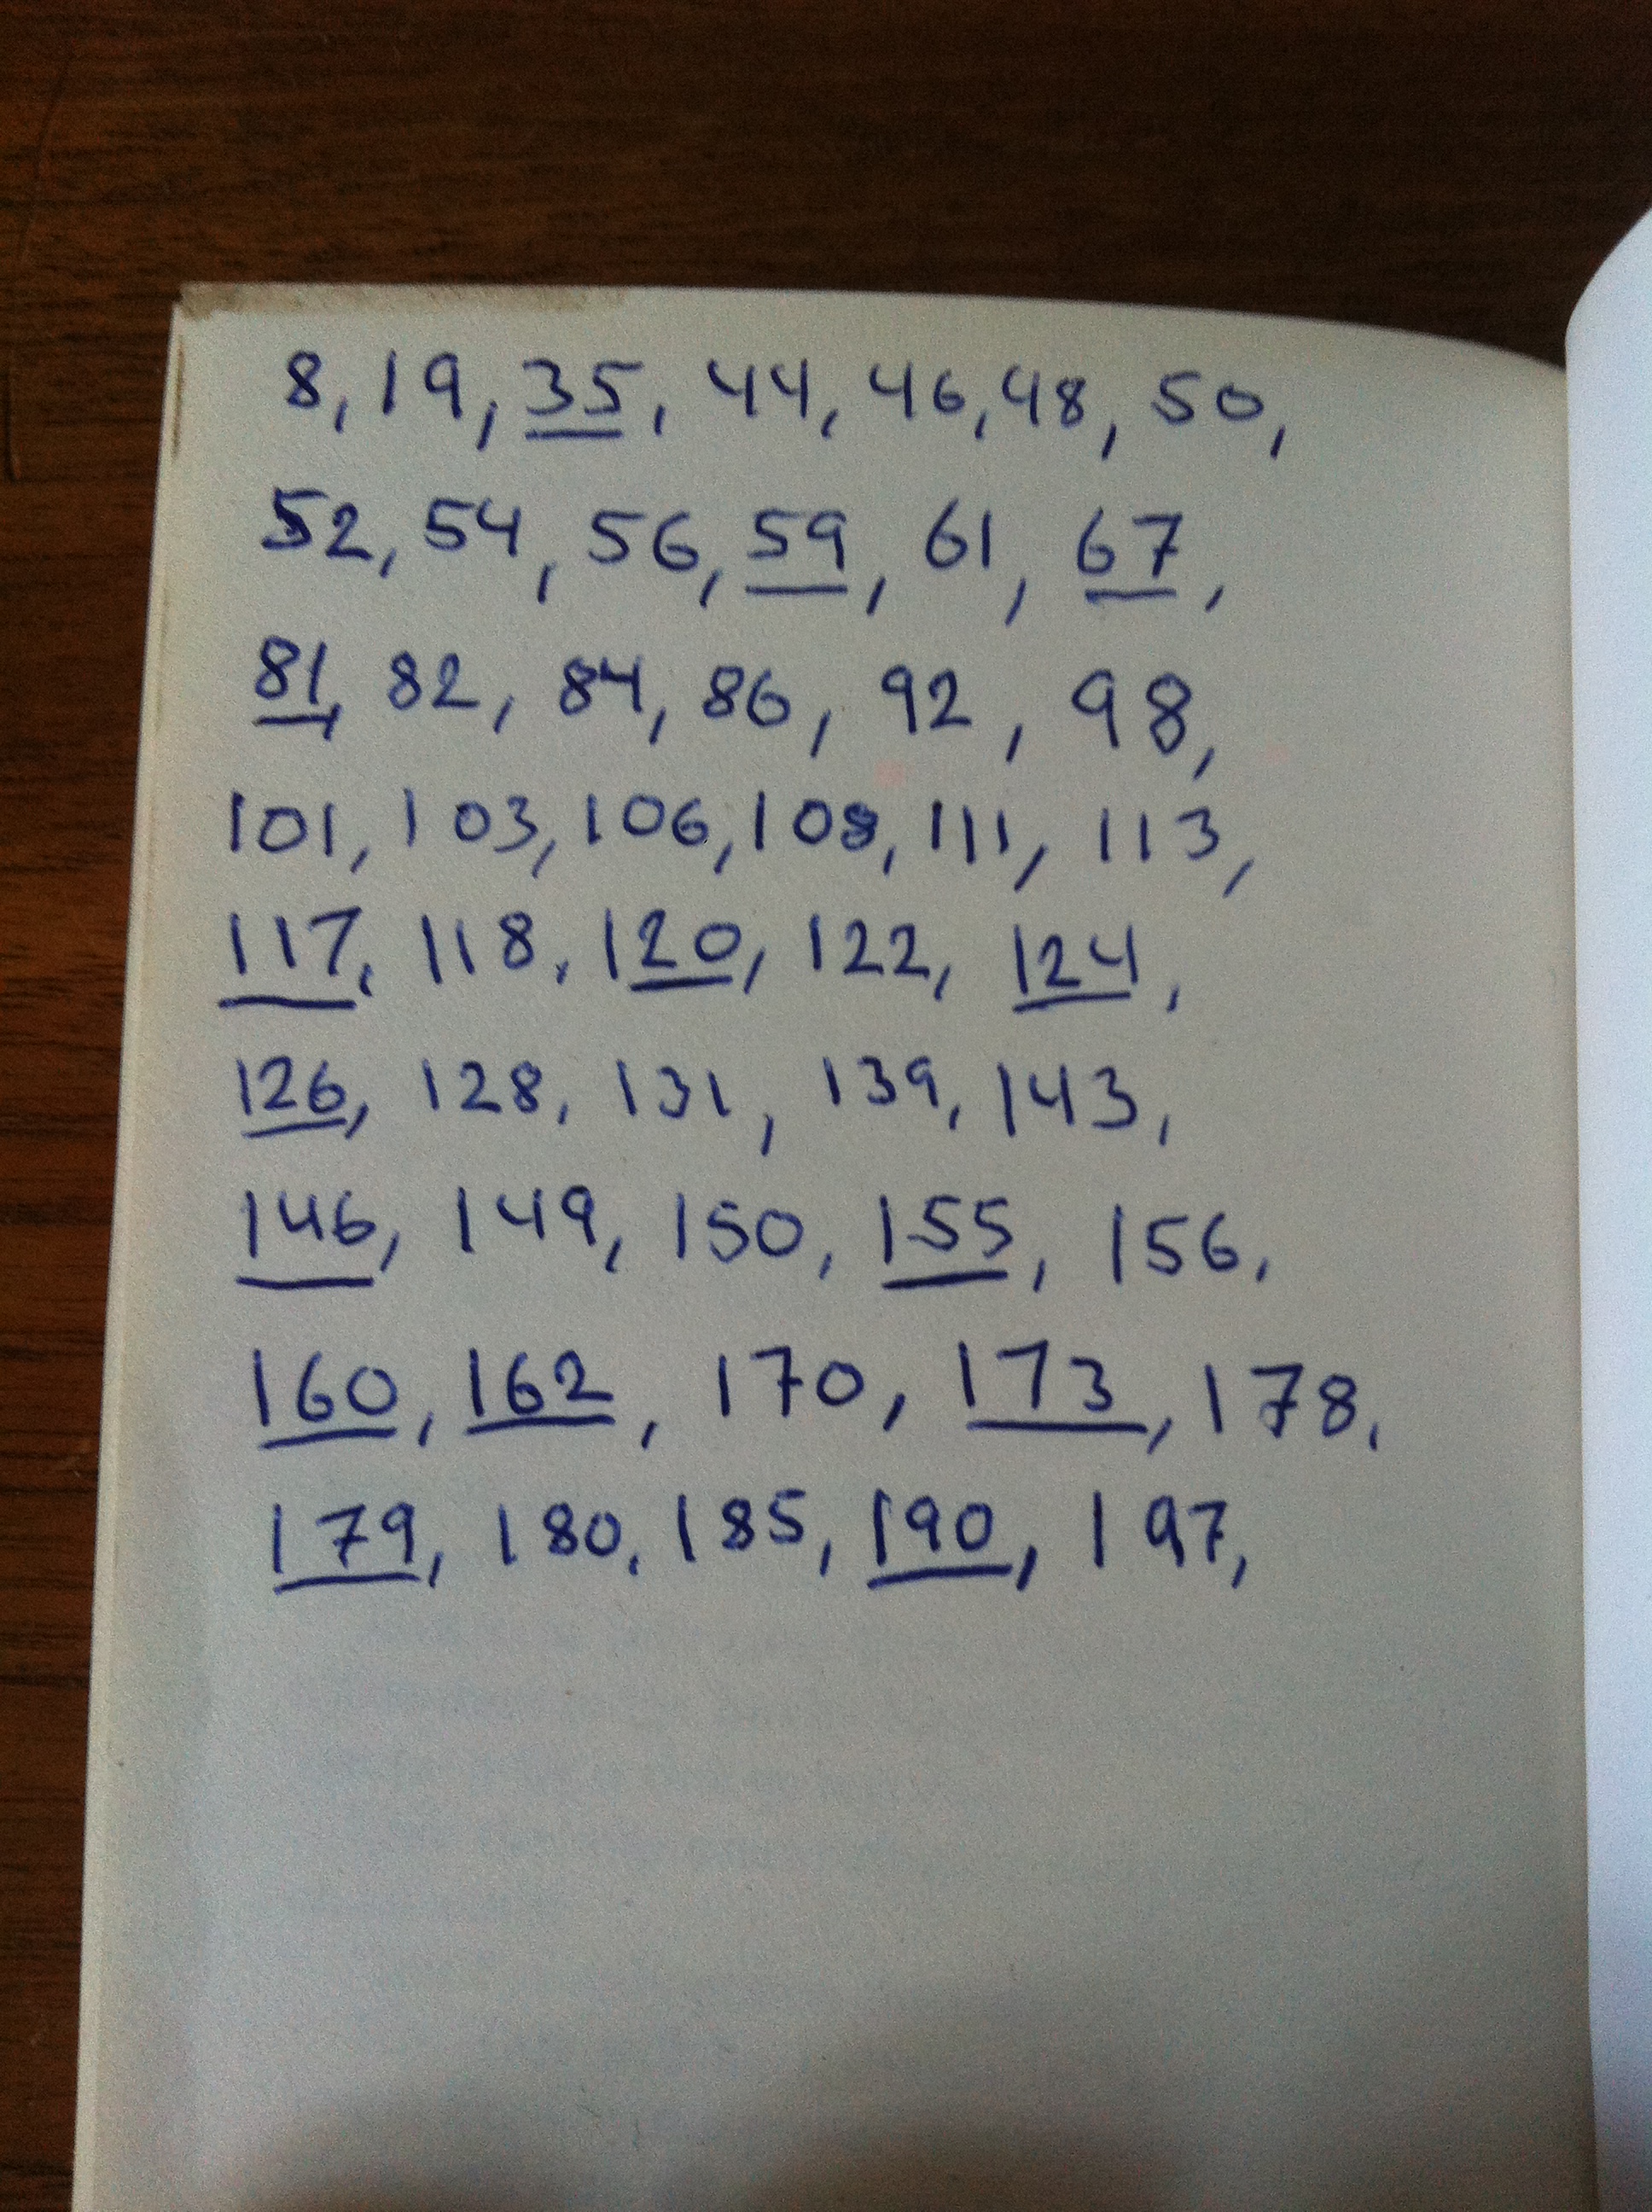 8, 19, 35, 44, 46, 48, 50,
52, 54, 56, 59, 61, 67,
81, 82, 84, 86, 92, 98,
101, 103, 106, 108, 111, 113,
117, 118, 120, 122, 124,
126, 128, 131, 139, 143,
146, 149, 150, 155, 156,
160, 162, 170, 173, 178,
179, 180, 185, 190, 197,